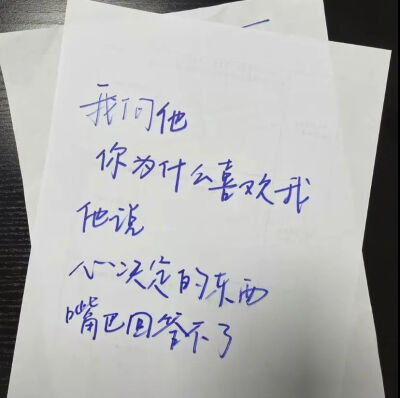 我问他
你为什么喜欢我
他说
心决定的东西
嘴巴回答不了